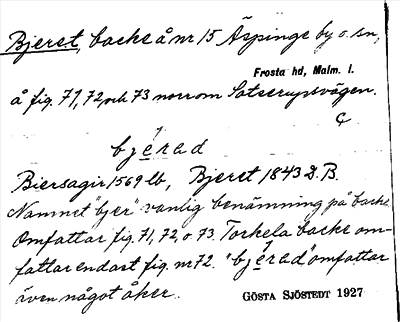 Bjeret, backe å nr 15 Äspinge by o. sn,
Frosta hd, Malm. l.
å fig. 71, 72, och 73 norrom Satserupsvägen.
C
bjérad
Biersagir 1569 lb, Bjeret 1843 D.B.
Namnet "bjer" vanlig benämning på backe.
Omfattar fig. 71, 72, o. 73. Torkela backe om-
fattar endast fig. nr 72. "bjérad" omfattar
även något åker.
GÖSTA SJÖSTEDT 1927